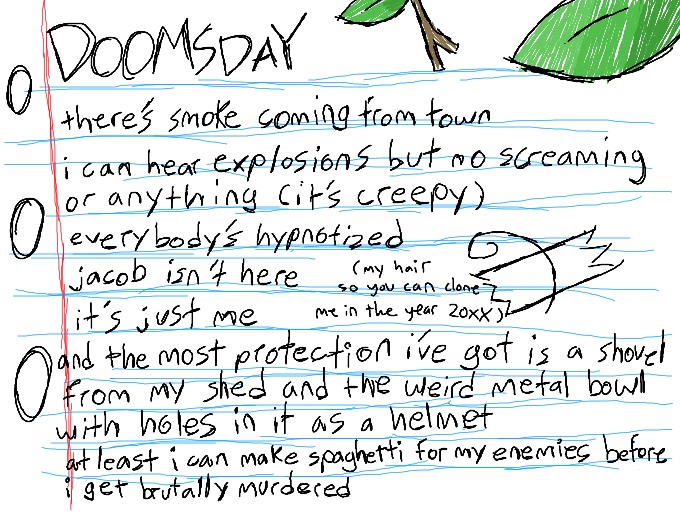 DOOMSDAY
there's smoke coming from town
i can hear explosions but no screaming
or anything (it's creepy)
everybody's hypnotized
jacob isn't here
(my hair
so you can clone
me in the year 20XX)
it's just me
and the most protection i've got is a shovel
from my shed and the weird metal bowl
with holes in it as a helmet
at least i can make spaghetti for my enemies before
i get brutally murdered